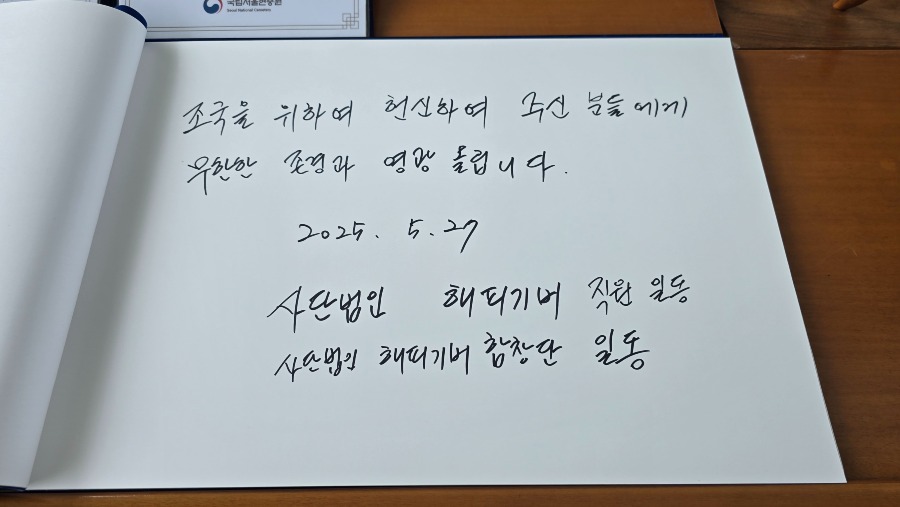 국립서울현충원
Seoul National Cemetery
조국을 위하여 헌신하여 주신 분들에게
무한한 존경과 영광 올립니다.
2025. 5. 27
사단법인 해피기버 직원 일동
사단법인 해피기버 합창단 일동